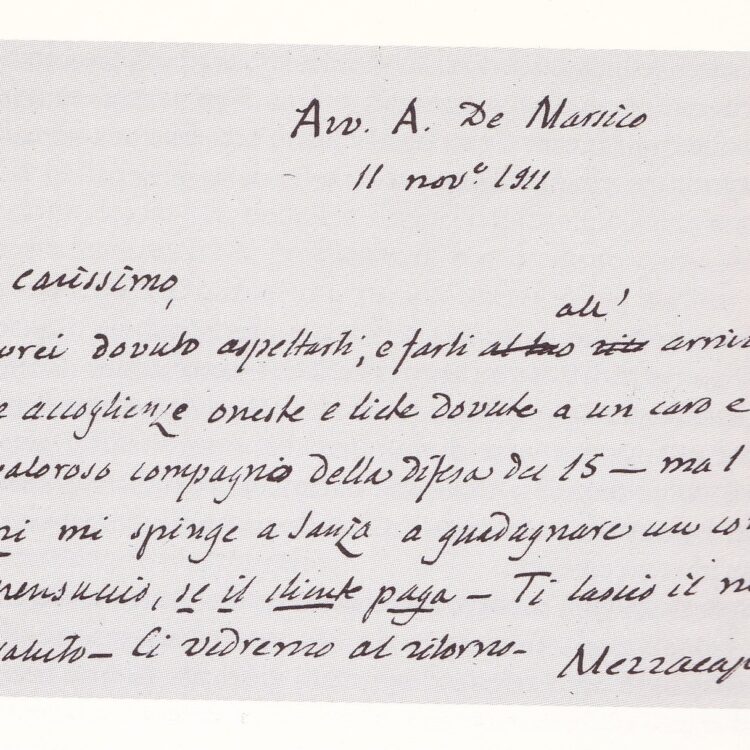 Avv. A. De Marsico
11 nov.e 1911
carissimo,
all'
vrei dovuto aspettarti, e farti al tuo arriv
e accoglienze oneste e liete dovute a un caro e
valoroso compagno della difesa del 15 — ma l
ni mi spinge a Sanza a guadagnare un co
pensuccio, se il cliente paga — Ti lascio il m
saluto — Ci vedremo al ritorno —
Mezzacap